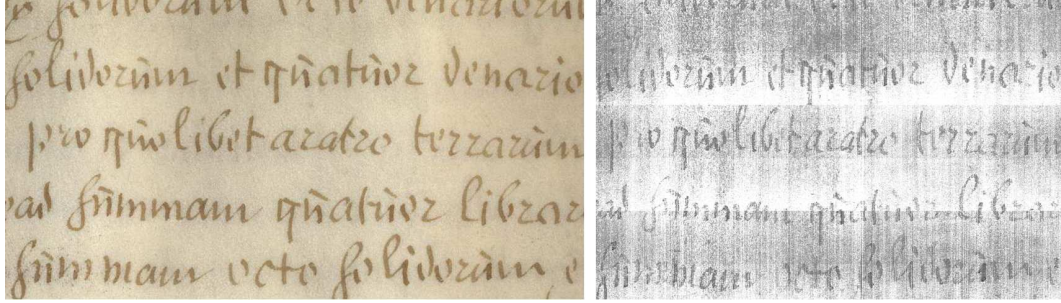 solidorum et quatuor denario
pro quolibet aratro terrarum
ad summam quatuor librar
summam octo solidorum e
solidorum et quatuor denario
pro quolibet aratro terrarum
ad summam quatuor librar
summam octo solidorum e